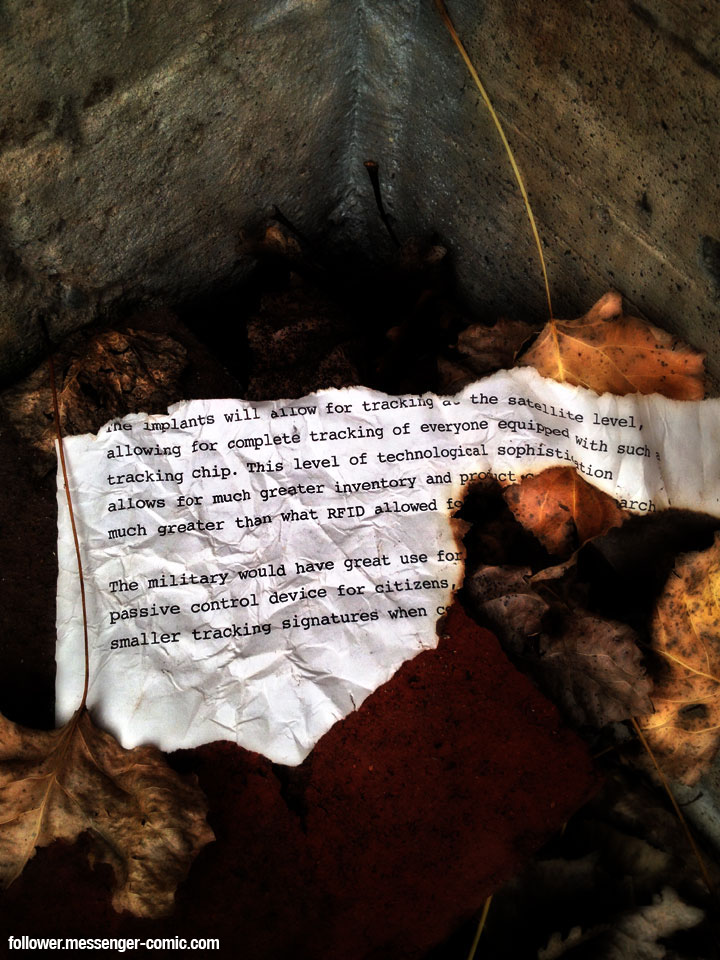 The implants will allow for tracking at the satellite level,
allowing for complete tracking of everyone equipped with such a
tracking chip. This level of technological sophistication
allows for much greater inventory and
much greater than what RFID allowed
The military would have great use for
passive control device for citizens,
smaller tracking signatures when
follower.messenger-comic.com